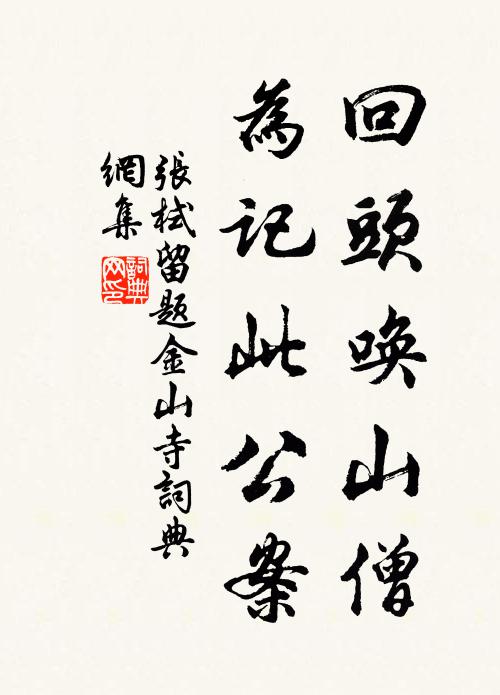 回頭喚山僧
為記此公案
張栻留題金山寺詞典
網集
詞典
网印